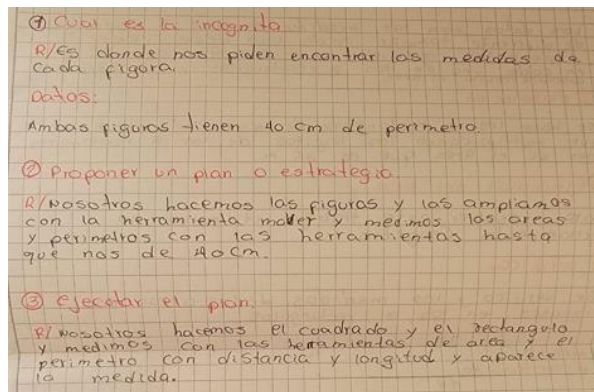 ① Cual es la incognita
R/Es donde nos piden encontrar las medidas de
cada figora.
Datos:
Ambas figuras tienen 40 cm de perimetro.
② Proponer un plan o estrategia.
R/Nosotros hacemos las figuras y las ampliamos
con la herramienta mover y medimos las areas
y perimetros con las herramientas hasta
que nos de 40 cm.
③ ejecutar el plan.
R/ Nosotros hacemos el cuadrado y el rectangulo
y medimos con las herramientas de area y el
perimetro con distancia y longitud y aparece
la medida.